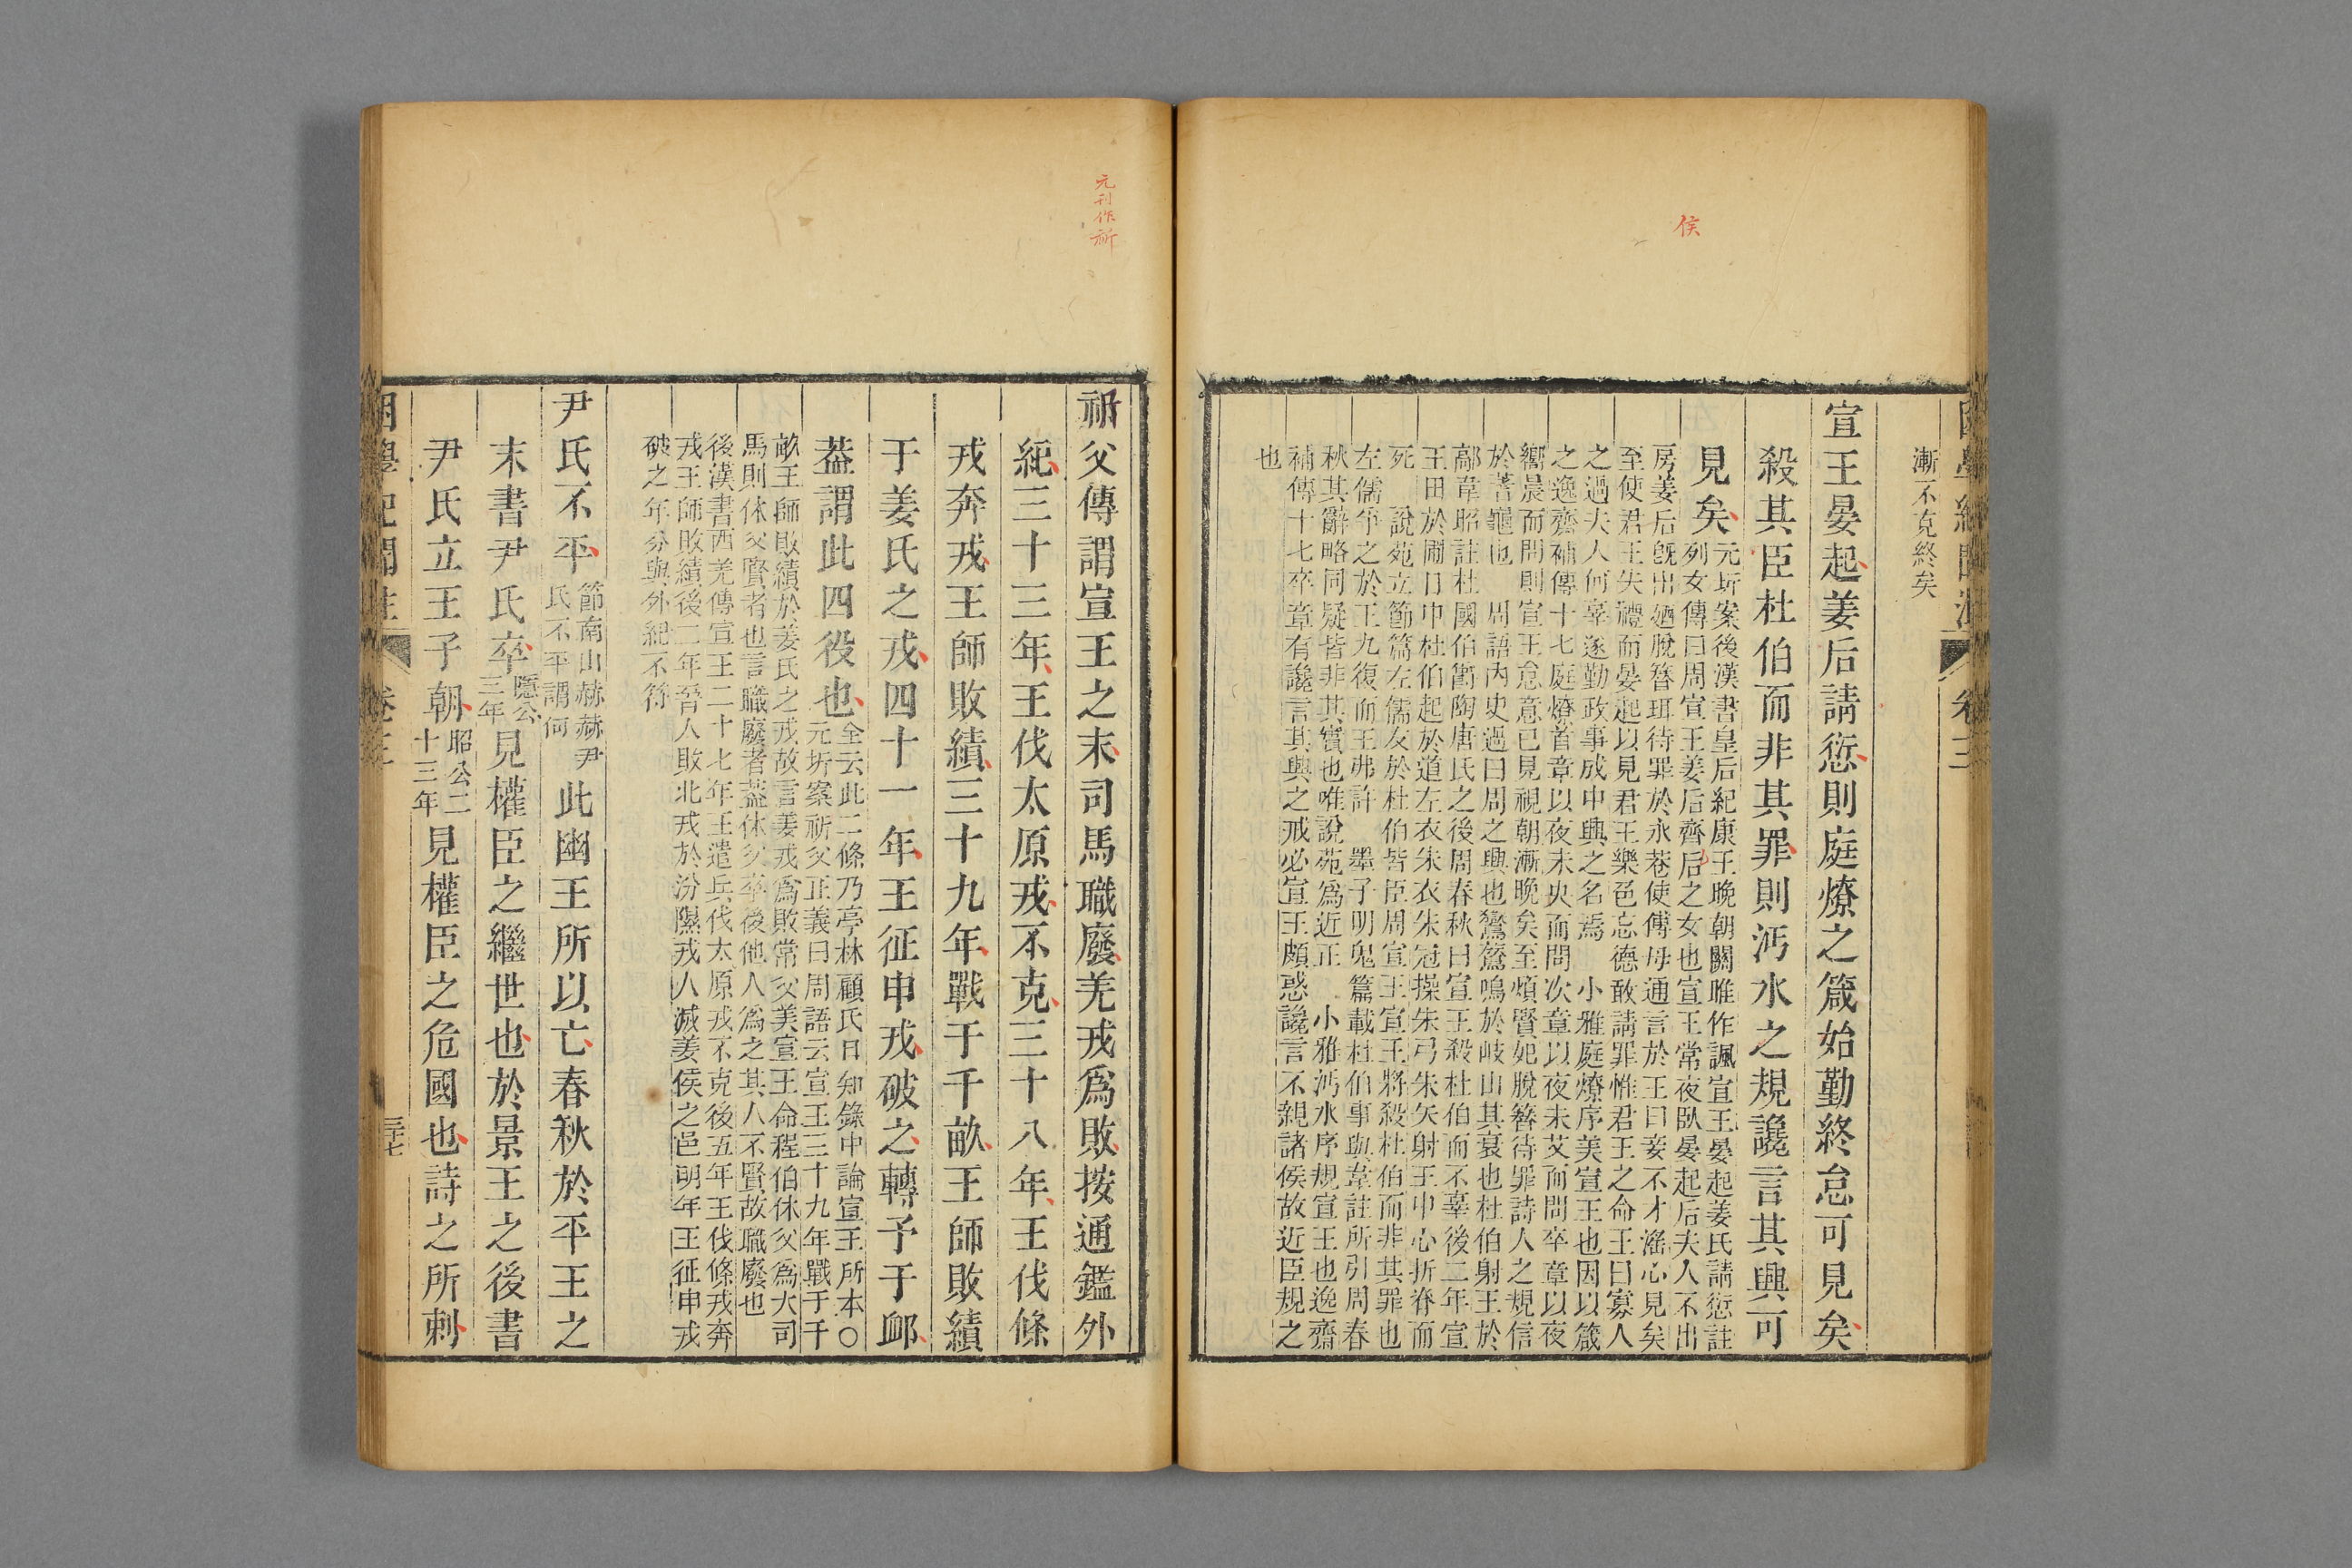 困學紀聞注 卷三
漸不克終矣
宣王晏起姜后請愆則庭燎之箴始勤終怠可見矣
殺其臣杜伯而非其罪則沔水之規讒言其興可
見矣元圻案後漢書皇后紀康王晚朝關雎作諷宣王晏起姜氏請愆註
列女傳曰周宣王姜后齊后之女也宣王常夜臥晏起后夫人不出
房姜后旣出廼脫簪珥待罪於永巷使傅母通言於王曰妾不才滛心見矣
至使君王失禮而晏起以見君王樂色忘德敢請罪惟君王之命王曰寡人
之過夫人何辜遂勤政事成中興之名焉　小雅庭燎序美宣王也因以箴
之逸齋補傳十七庭燎首章以夜未央而問次章以夜未艾而問卒章以夜
嚮晨而問則宣王怠意已見視朝漸晚矣至煩賢妃脫簪待罪詩人之規信
於蓍龜也　周語內史過曰周之興也鸑鷟鳴於岐山其衰也杜伯射王於
鄗韋昭註杜國伯爵陶唐氏之後周春秋曰宣王殺杜伯而不辜後二年宣
王田於圃日中杜伯起於道左衣朱衣朱冠操朱弓朱矢射王中心折脊而
死　說苑立節篇左儒友於杜伯皆臣周宣王宣王將殺杜伯而非其罪也
左儒爭之於王九復而王弗許　墨子明鬼篇載杜伯事與韋註所引周春
秋其辭略同疑皆非其實也唯說苑爲近正　小雅沔水序規宣王也逸齋
補傳十七卒章有讒言其興之戒必宣王頗惑讒言不親諸侯故近臣規之
也
侯
元刊作祈
祁父傳謂宣王之末司馬職廢羌戎爲敗按通鑑外
紀三十三年王伐太原戎不克三十八年王伐條
戎奔戎王師敗績三十九年戰于千畝王師敗績
于姜氏之戎四十一年王征申戎破之轉予于䘏
葢謂此四役也全云此二條乃亭林顧氏日知錄中論宣王所本○
元圻案祈父正義曰周語云宣王三十九年戰于千
畝王師敗績於姜氏之戎故言姜戎爲敗常父美宣王命程伯休父爲大司
馬則休父賢者也言職廢者葢休父卒後他人爲之其人不賢故職廢也
後漢書西羌傳宣王二十七年王遣兵伐太原戎不克後五年王伐條戎奔
戎王師敗績後二年晉人敗北戎於汾隰戎人滅姜侯之邑明年王征申戎
破之年分與外紀不符
尹氏不平節南山赫赫尹
氏不平謂何此幽王所以亡春秋於平王之
末書尹氏卒隱公
三年見權臣之繼世也於景王之後書
尹氏立王子朝昭公二
十三年見權臣之危國也詩之所刺
困學紀聞注 卷三 三十七